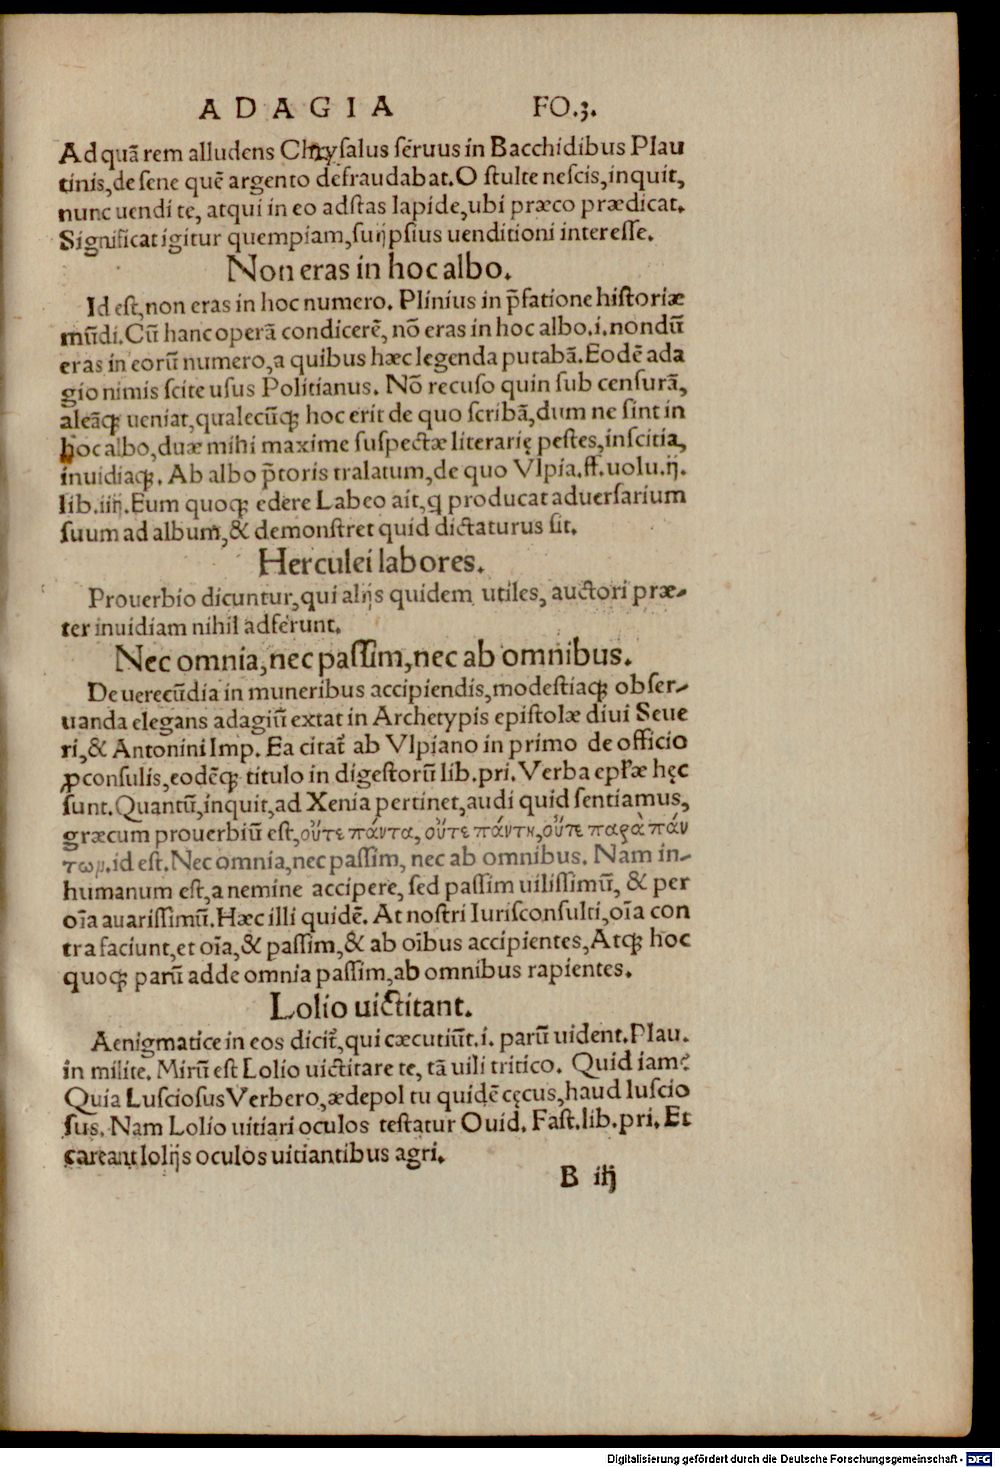 ADAGIA FO.3.
Ad quā rem alludens Chrysalus seruus in Bacchidibus Plau
tinis,de sene quē argento defraudabat.O stulte nescis,inquit,
nunc uendi te, atqui in eo adstas lapide,ubi præco prædicat.
Significat igitur quempiam,suijpsius uenditioni interesse.
Non eras in hoc albo.
Id est,non eras in hoc numero. Plinius in p̄fatione historiæ
mūdi.Cū hanc operā condicerē, nō eras in hoc albo.i.nondū
eras in eorū numero,a quibus hæc legenda putabā.Eodē ada
gio nimis scite usus Politianus. Nō recuso quin sub censurā,
aleāq; ueniat,qualecūq; hoc erit de quo scribā,dum ne sint in
hoc albo,duæ mihi maxime suspectæ literarię pestes,inscitia,
inuidiaq;. Ab albo p̄toris tralatum,de quo Vlpia.ff.uolu.ij.
lib.iiij.Eum quoq; edere Labeo ait,q producat aduersarium
suum ad album,& demonstret quid dictaturus sit.
Herculei labores.
Prouerbio dicuntur,qui alijs quidem utiles, auctori præ-
ter inuidiam nihil adferunt.
Nec omnia,nec passim,nec ab omnibus.
De uerecūdia in muneribus accipiendis,modestiaq; obser-
uanda elegans adagiū extat in Archetypis epistolæ diui Seue
ri,& Antonini Imp. Ea citat̄ ab Vlpiano in primo de officio
ꝓconsulis,eodēq; titulo in digestorū lib.pri.Verba epl̄æ hęc
sunt.Quantū,inquit,ad Xenia pertinet,audi quid sentiamus,
græcum prouerbiū est,οὔτε πάντα, οὔτε πάντη,οὔτε παρὰ πάν
των.id est.Nec omnia,nec passim, nec ab omnibus. Nam in-
humanum est,a nemine accipere, sed passim uilissimū, & per
oīa auarissimū.Hæc illi quidē. At nostri Iurisconsulti,oīa con
tra faciunt,et oīa,& passim,& ab oībus accipientes,Atq; hoc
quoq; parū adde omnia passim,ab omnibus rapientes.
Lolio uictitant.
Aenigmatice in eos dicit̄,qui cæcutiūt.i. parū uident.Plau.
in milite. Mirū est Lolio uictitare te, tā uili tritico. Quid iam?
Quia Lusciosus Verbero,ædepol tu quidē cęcus,haud luscio
sus. Nam Lolio uitiari oculos testatur Ouid. Fast.lib.pri. Et
careant lolijs oculos uitiantibus agri.
B iij
Digitalisierung gefördert durch die Deutsche Forschungsgemeinschaft - DFG